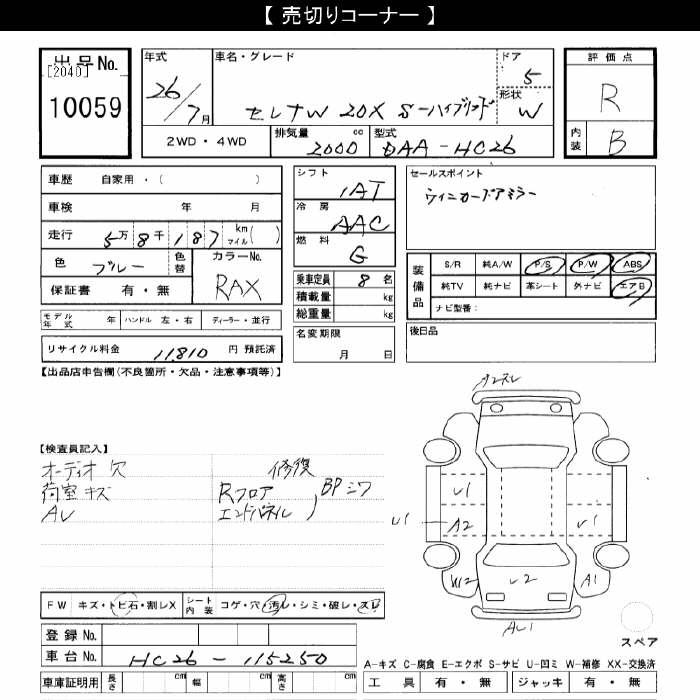 【 売切りコーナー 】
出品No.
[2040]
10059
年式
26/7月
車名・グレード
セレナW 20X S-ハイブリッド
ドア
5
形状
W
2WD・4WD
排気量 cc
2000
型式
DAA-HC26
評価点
R
内装
B
車歴 自家用・( )
車検 年 月
走行 5万8千187 km マイル( )
色 ブルー
色替
カラーNo.
RAX
保証書 有・無
モデル年式 年 ハンドル 左・右 ディーラー・並行
リサイクル料金 11,810 円 預託済
シフト
IAT
冷房
AAC
燃料
G
乗車定員 8 名
積載量 kg
総重量 kg
名変期限
月 日
セールスポイント
ウィンカードアミラー
装備品
S/R 純A/W P/S P/W ABS
純TV 純ナビ 革シート 外ナビ エアB
ナビ型番:
後日品
【出品店申告欄(不良箇所・欠品・注意事項等)】
【検査員記入】
オーディオ欠
荷室キズ
AU
修復
Rフロア
エンドパネル
BPシワ
A2スレ
U1
U1
A2
U1
W2
U2
A1
AU1
スペア
FW キズ・トビ石・割レX
シート内装 コゲ・穴・汚レ・シミ・破レ・スレ
登録No.
車台No. HC26-115250
車庫証明用 長さ cm 幅 cm 高さ cm
A-キズ C-腐食 E-エクボ S-サビ U-凹ミ W-補修 XX-交換済
工具 有・無 ジャッキ 有・無